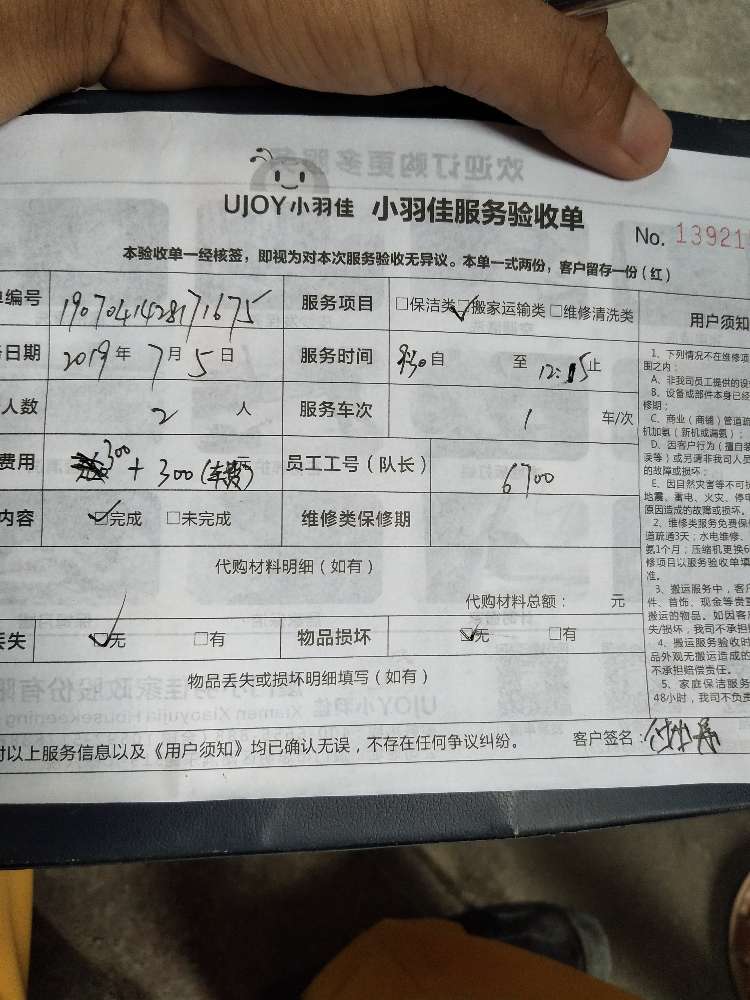 UJOY小羽佳 小羽佳服务验收单
No. 13921
本验收单一经核签，即视为对本次服务验收无异议。本单一式两份，客户留存一份（红）
单编号 1907041428171675 服务项目 □保洁类 ☑搬家运输类 □维修清洗类 用户须知
日期 2019年7月5日 服务时间 930自 至 12:15止
人数 2 人 服务车次 1 车/次
费用 300+300(车费)元 员工工号（队长） 6700
内容 ☑完成 □未完成 维修类保修期
代购材料明细（如有）
代购材料总额： 元
丢失 ☑无 □有 物品损坏 ☑无 □有
物品丢失或损坏明细填写（如有）
对以上服务信息以及《用户须知》均已确认无误，不存在任何争议纠纷。 客户签名：
1、下列情况不在维修项
围之内：
A、非我司员工提供的设
B、设备或部件本身已经
修期；
C、商业（商铺）管道疏
机加氨（新机或漏氨）；
D、因客户行为（擅自装
误等）或另请非我司人员
的故障或损坏；
E、因自然灾害等不可抗
地震、蓄电、火灾、停电
原因造成的故障或损坏。
2、维修类服务免费保修
道疏通3天；水电维修、
氨1个月；压缩机更换6
修项目以服务验收单填
准。
3、搬运服务中，客户
件、首饰、现金等贵重
搬运的物品。如因客户
失/损坏，我司不承担
4、搬运服务验收时
品外观无搬运造成的
不承担赔偿责任。
5、家庭保洁服务
48小时，我司不负责